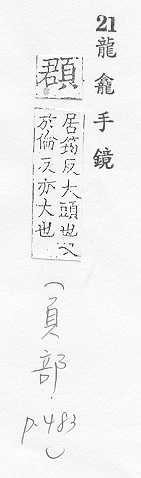 21 龍龕手鏡
頵
居筠反大頭也又
於倫反亦大也
(頁部.
p.483)